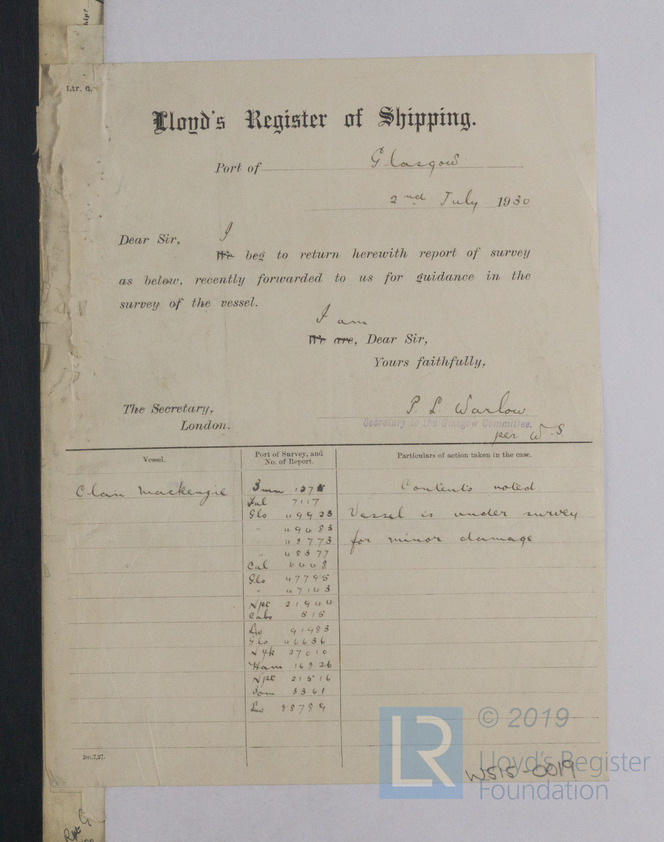 Ltr. G.
Lloyd's Register of Shipping.
Port of Glasgow
2nd July 1930
Dear Sir, I
We beg to return herewith report of survey
as below, recently forwarded to us for guidance in the
survey of the vessel.
I am
We are, Dear Sir,
Yours faithfully,
The Secretary,
London.
P. L. Warlow
Secretary to the Glasgow Committee.
per W. S
Vessel.
Port of Survey, and
No. of Report.
Particulars of action taken in the case.
Clan Mackenzie
Contents noted
Vessel is under survey
for minor damage
Fal 7117
Glo 49923
" 49483
" 48773
" 48377
Cal
Glo 47795
" 47143
Npt 21944
Glo 46636
N Yk 27010
Ham 16926
Npt 21516
3361
2m.7.27.
LR
© 2019
Lloyd's Register
Foundation
W515-0019